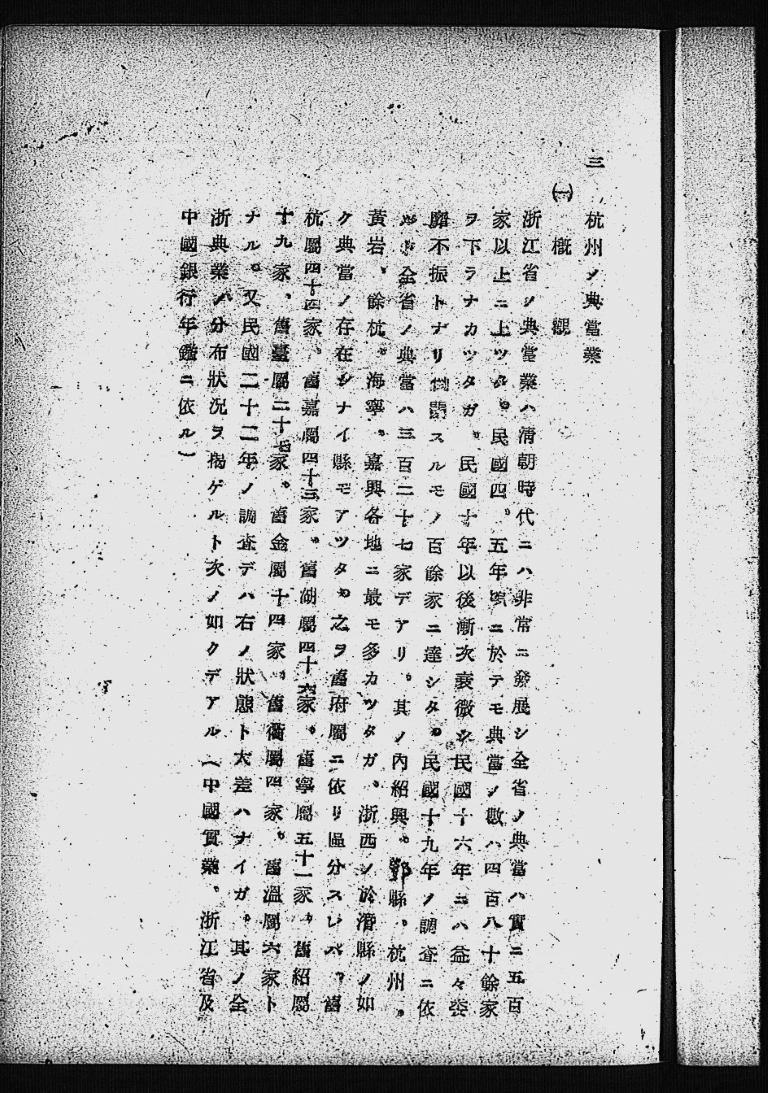 三 杭州ノ典當業
㈠ 概觀
浙江省ノ典當業ハ清朝時代ニハ非常ニ發展シ全省ノ典當ハ實ニ五百
家以上ニ上ツタ。民國四、五年頃ニ於テモ典當ノ數ハ四百八十餘家
ヲ下ラナカツタガ、民國十年以後漸次衰微シ民國十六年ニハ益々姿
靡不振トナリ倒閉スルモノ百餘家ニ達シタ。民國十九年ノ調査ニ依
ルト全省ノ典當ハ三百二十七家デアリ、其ノ內紹興、鄞縣、杭州、
黃岩、餘杭、海寧、嘉興各地ニ最モ多カツタガ、浙西ノ於潛縣ノ如
ク典當ノ存在シナイ縣モアツタ。之ヲ舊府屬ニ依リ區分スレバ、舊
杭屬四十四家、舊嘉屬四十三家、舊湖屬四十六家、舊寧屬五十一家、舊紹屬
十九家、舊臺屬二十七家、舊金屬十四家、舊衢屬四家、舊溫屬六家ト
ナル。又民國二十二年ノ調査デハ右ノ狀態ト大差ハナイガ、其ノ全
浙典業ノ分布狀況ヲ揭ゲルト次ノ如クデアル(中國實業、浙江省及
中國銀行年鑑ニ依ル)